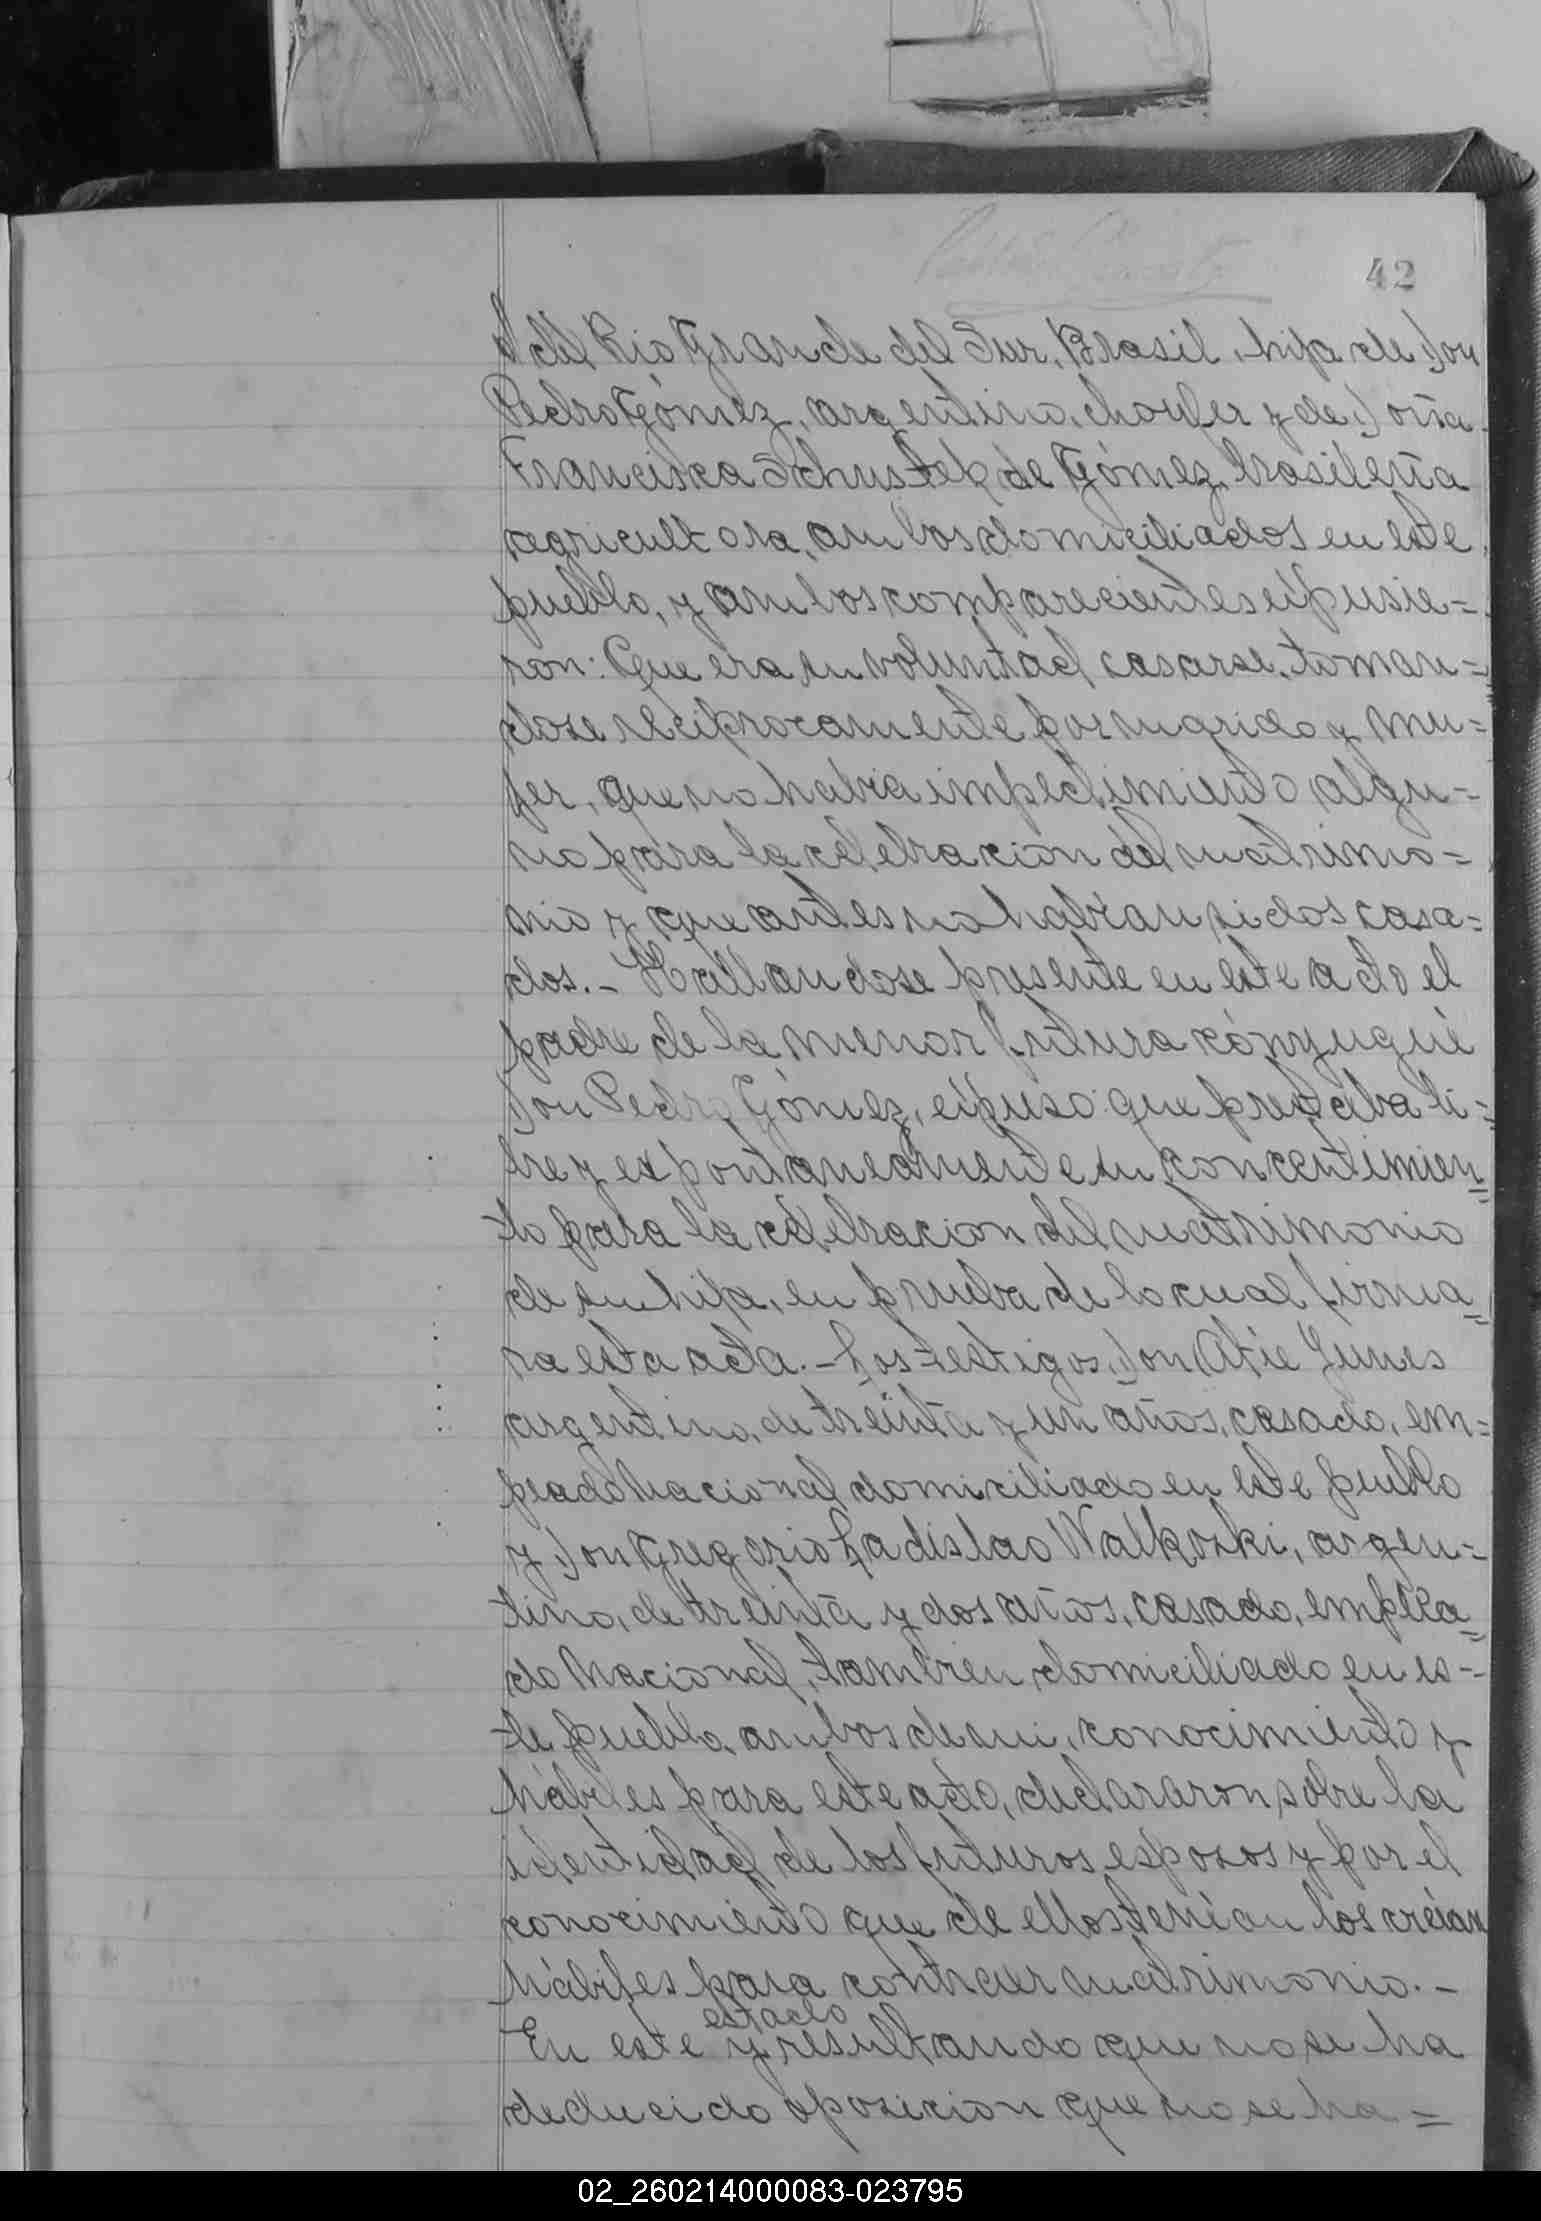 42
del Rio Grande del Sur, Brasil, hija de Don
Pedro Gómez, argentino, choufer y de Doña
Francisca Schustek de Gómez, brasileña
agricultora, ambos domiciliados en este
pueblo, y ambos comparecientes expusie=
ron: Que era su voluntad casarse, toman=
dose reciprocamente por marido y mu=
jer, que no habia impedimiento algu=
no para la celebracion del matrimo=
nio y que antes no habian sidos casa=
dos.- Hallandose presente en este acto el
padre de la menor futura cónyugue
Don Pedro Gómez, expuso: que prestaba li=
bre y expontaneamente su concentimien=
to para la celebracion del matrimonio
de su hija, en prueba de lo cual firma=
ra esta acta.- Los testigos, Don Atie Yunes
argentino, de treinta y un años, casado, em=
peado Nacional domiciliado en este pueblo
y Don Gregorio Ladislao Walkoski, argen=
tino, de treinta y dos años, casado, emplea=
do Nacional, tambien domiciliado en es=
te pueblo, ambos de mi conocimiento y
hábiles para este acto, declararon sobre la
identidad de los futuros esposos y por el
conocimiento que de ellos tenian los creian
hábiles para contraer matrimonio.-
estado
En este y resultando que no se ha
deducido oposicion que no se ha=
02_260214000083-023795